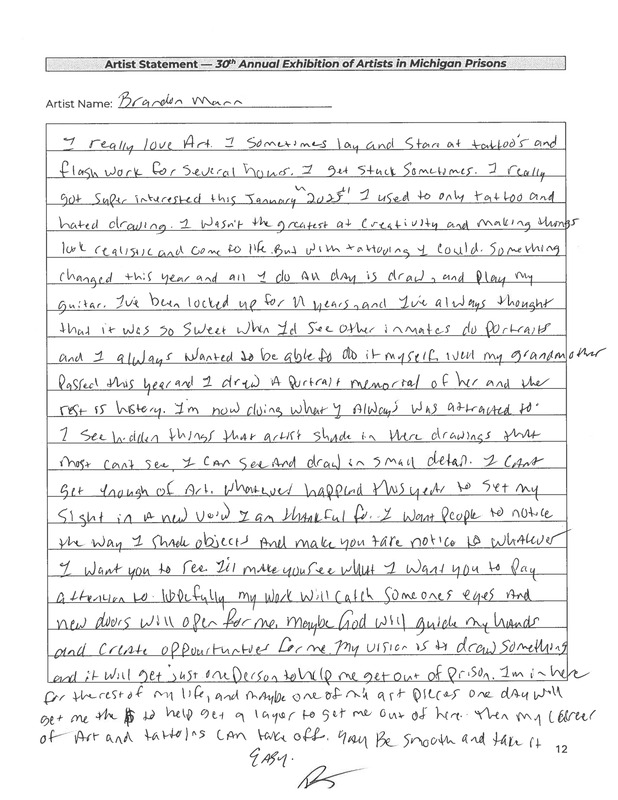 Artist Statement — 30th Annual Exhibition of Artists in Michigan Prisons
Artist Name: Brandon Mann
I really love Art. I Sometimes lay and Stare at tattoo's and
flash work for Several hours. I get Stuck Sometimes. I really
got Super interested this January "2025" I used to only tattoo and
hated drawing. I Wasn't the greatest at Creativity and making things
look realistic and Come to life. But with tattooing I Could. Something
changed this year and all I do All day is draw, and Play my
guitar. I've been locked up for 11 years, and I've always thought
that it was so Sweet when I'd See other inmates do Portraits
and I always wanted to be able to do it myself, well my grandmother
Passed this year and I drew A Portrait memorial of her and the
rest is history. I'm now doing what I Always was attracted to.
I See hidden things that artist shade in there drawings that
most cant see, I Can See And draw in Small detail. I Cant
get enough of Art. Whatever happend this year to Set my
Sight in A new I am thankful for. I Want People to notice
the way I Shade objects And make you take notice to Whatever
I Want you to See. I'll make you See what I Want you to Pay
attention to. Hopefully my Work Will Catch Someones eyes And
new doors Will open for me. Maybe God Will guide my hands
and Create for me. My vision is to draw Something
and it Will get just one Person to help me get out of Prison. I'm in here
for the rest of my life, and maybe one of my art pieces one day will
get me the $ to help get a layer to get me out of here. Then my Career
of Art and Can take off. Be Smooth and take it
Easy.
12